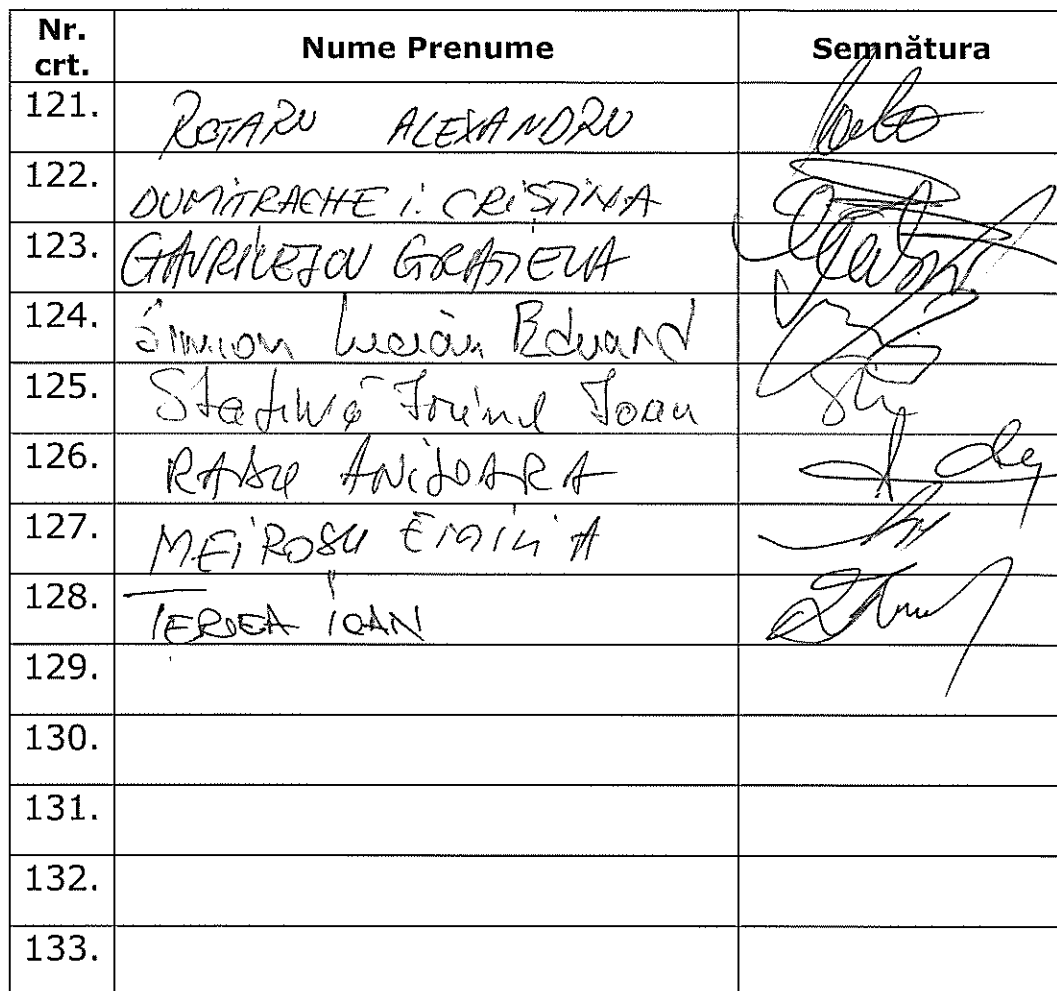 Nr. crt. Nume Prenume Semnătura
121. ROTARU ALEXANDRU
122. DUMITRACHE I. CRISTINA
123. GAVRILEȚOV GRAȚIELA
124. Simion Lucian Eduard
125. Stativă Ioan
126. RADU ANIȘOARA
127. MEIROSU EMILIA
128. TERȚEA IOAN
129.
130.
131.
132.
133.